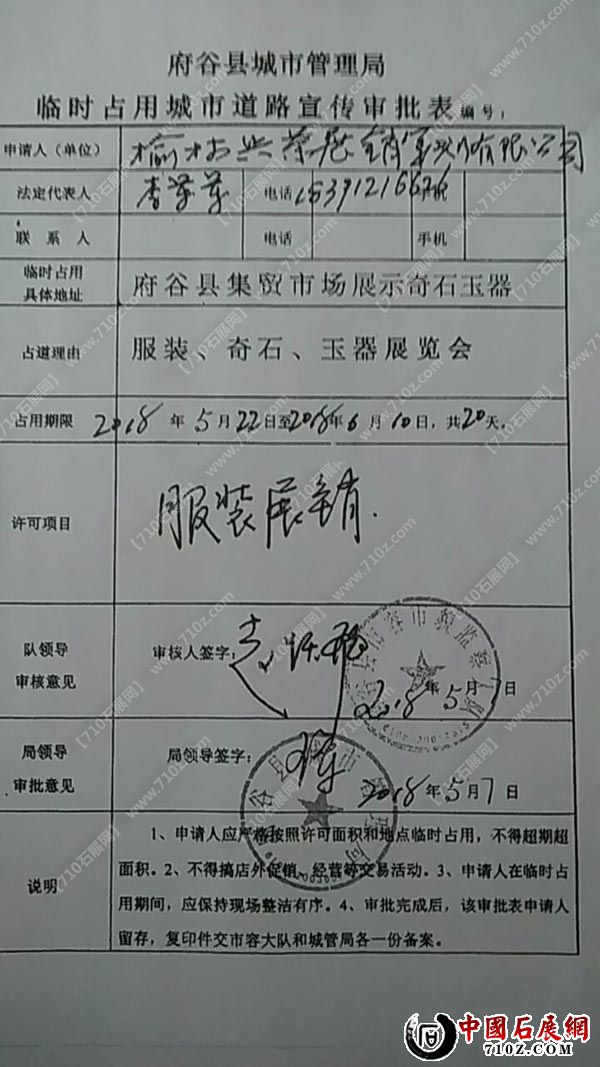 府谷县城市管理局
临时占用城市道路宣传审批表 编号：
申请人（单位） 有限公司
法定代表人 电话 手机
联系人 电话 手机
临时占用
具体地址 府谷县集贸市场展示奇石玉器
占道理由 服装、奇石、玉器展览会
占用期限 2018年5月22日至2018年6月10日，共20天。
许可项目 服装展销.
队领导
审核意见 审核人签字：
2018年5月7日
局领导
审批意见 局领导签字：
2018年5月7日
1、申请人应严格按照许可面积和地点临时占用，不得超期超
面积。2、不得搞店外促销、经营等交易活动。3、申请人在临时占
说明 用期间，应保持现场整洁有序。4、审批完成后，该审批表申请人
留存，复印件交市容大队和城管局各一份备案。
【710石展网】www.710z.com
中國石展網
710Z.COM